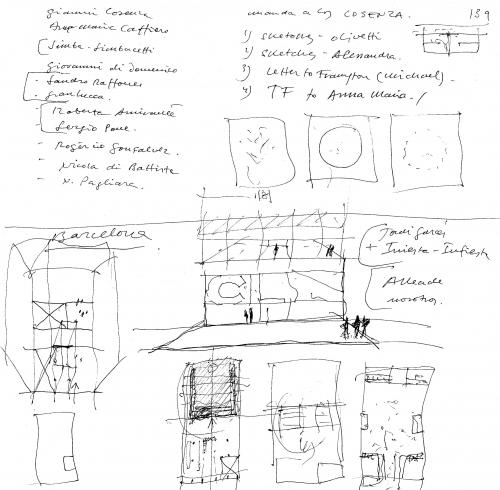 Gianni Cosenza
Anna Maria Caffiero
Simba-
Giovanni di Domenico
- Sandro Raffone
- Gianluca.
Roberta Amirante
Sergio
- Rogério Gonçalvez.
- Nicola di Battista
- N. Pagliara.
manda a los COSENZA.
189
1) sketches - Olivetti
2) sketches - Alessandra.
3) Letter to Frampton (Michael) -
4) TF to Anna Maria. /
Barcelona
Jordi Garcés
+ Iniesta -
nosotros.